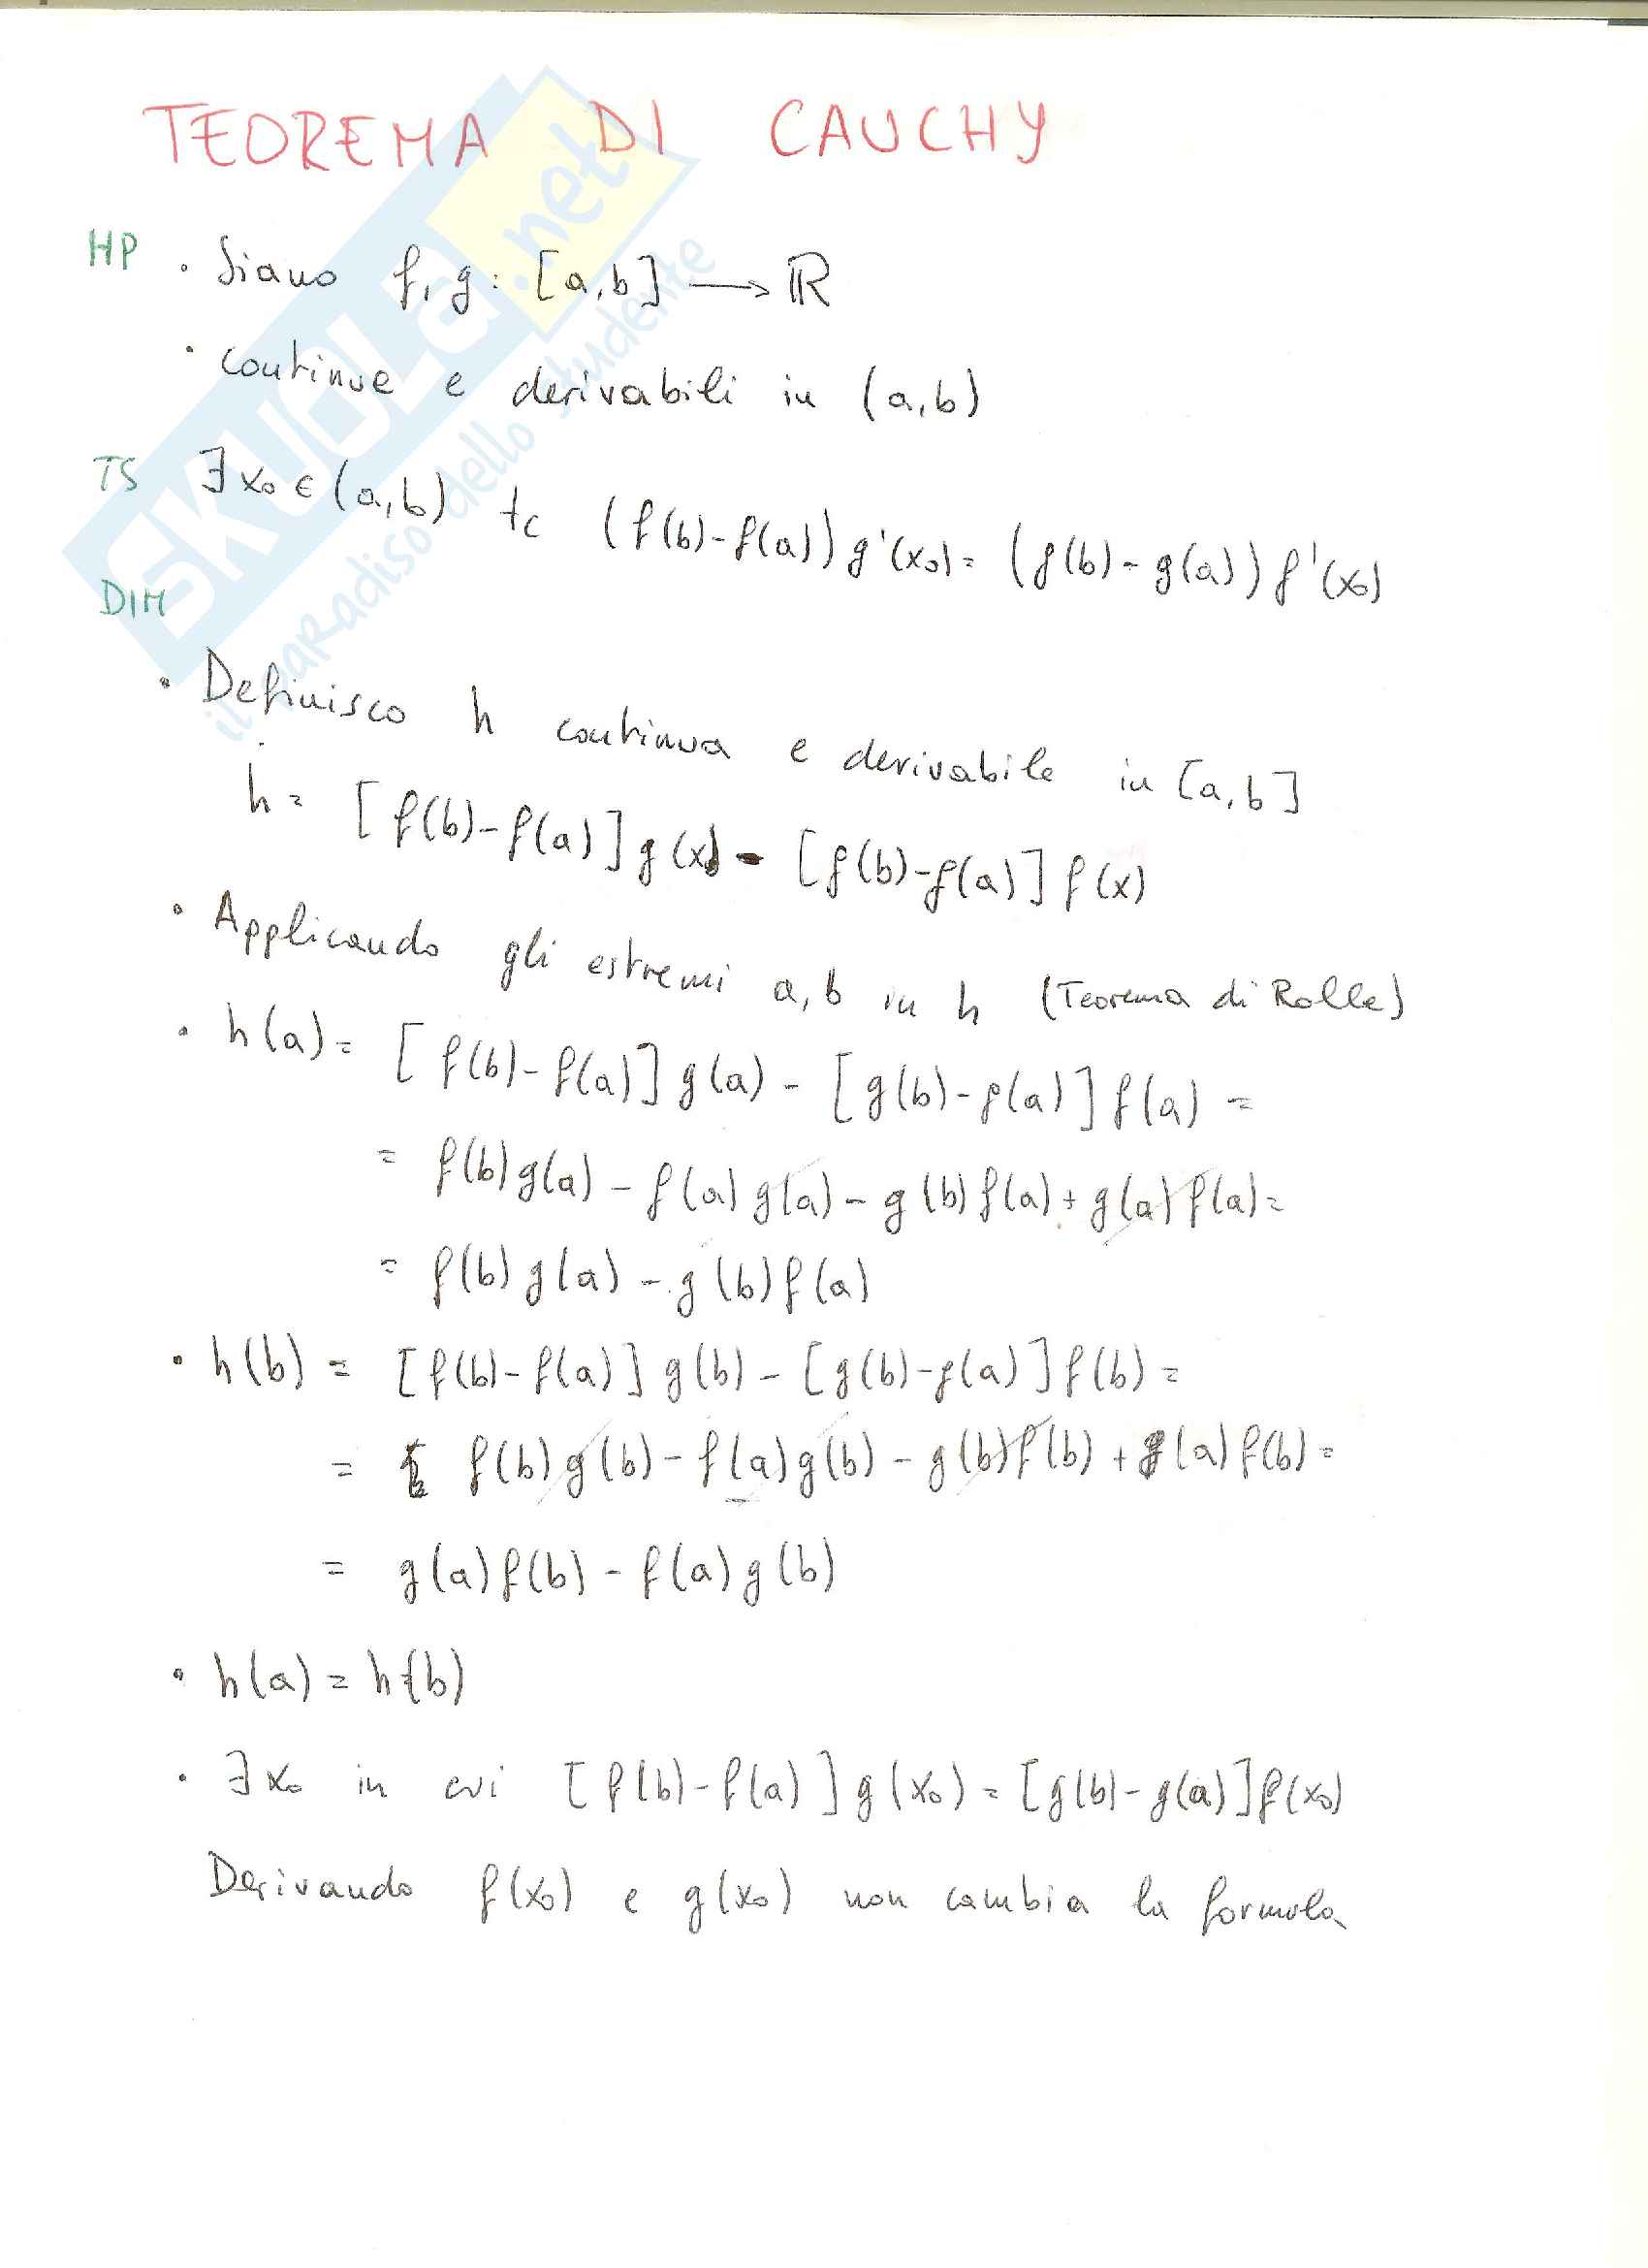 TEOREMA DI CAUCHY
HP • Siano f, g : [a,b] → ℝ
• continue e derivabili in (a,b)
TS ∃ x₀ ∈ (a,b) tc (f(b)-f(a)) g'(x₀) = (g(b)-g(a)) f'(x₀)
DIM
• Definisco h continua e derivabile in [a,b]
h = [f(b)-f(a)] g(x) - [g(b)-g(a)] f(x)
• Applicando gli estremi a, b in h (Teorema di Rolle)
• h(a) = [f(b)-f(a)] g(a) - [g(b)-g(a)] f(a) =
= f(b)g(a) - f(a)g(a) - g(b)f(a) + g(a)f(a) =
= f(b)g(a) - g(b)f(a)
• h(b) = [f(b)-f(a)] g(b) - [g(b)-g(a)] f(b) =
= f(b)g(b) - f(a)g(b) - g(b)f(b) + g(a)f(b) =
= g(a)f(b) - f(a)g(b)
• h(a) = h(b)
• ∃ x₀ in cui [f(b)-f(a)] g(x₀) = [g(b)-g(a)] f(x₀)
Derivando f(x₀) e g(x₀) non cambia la formula
SKUOLA.net
il paradiso dello studente